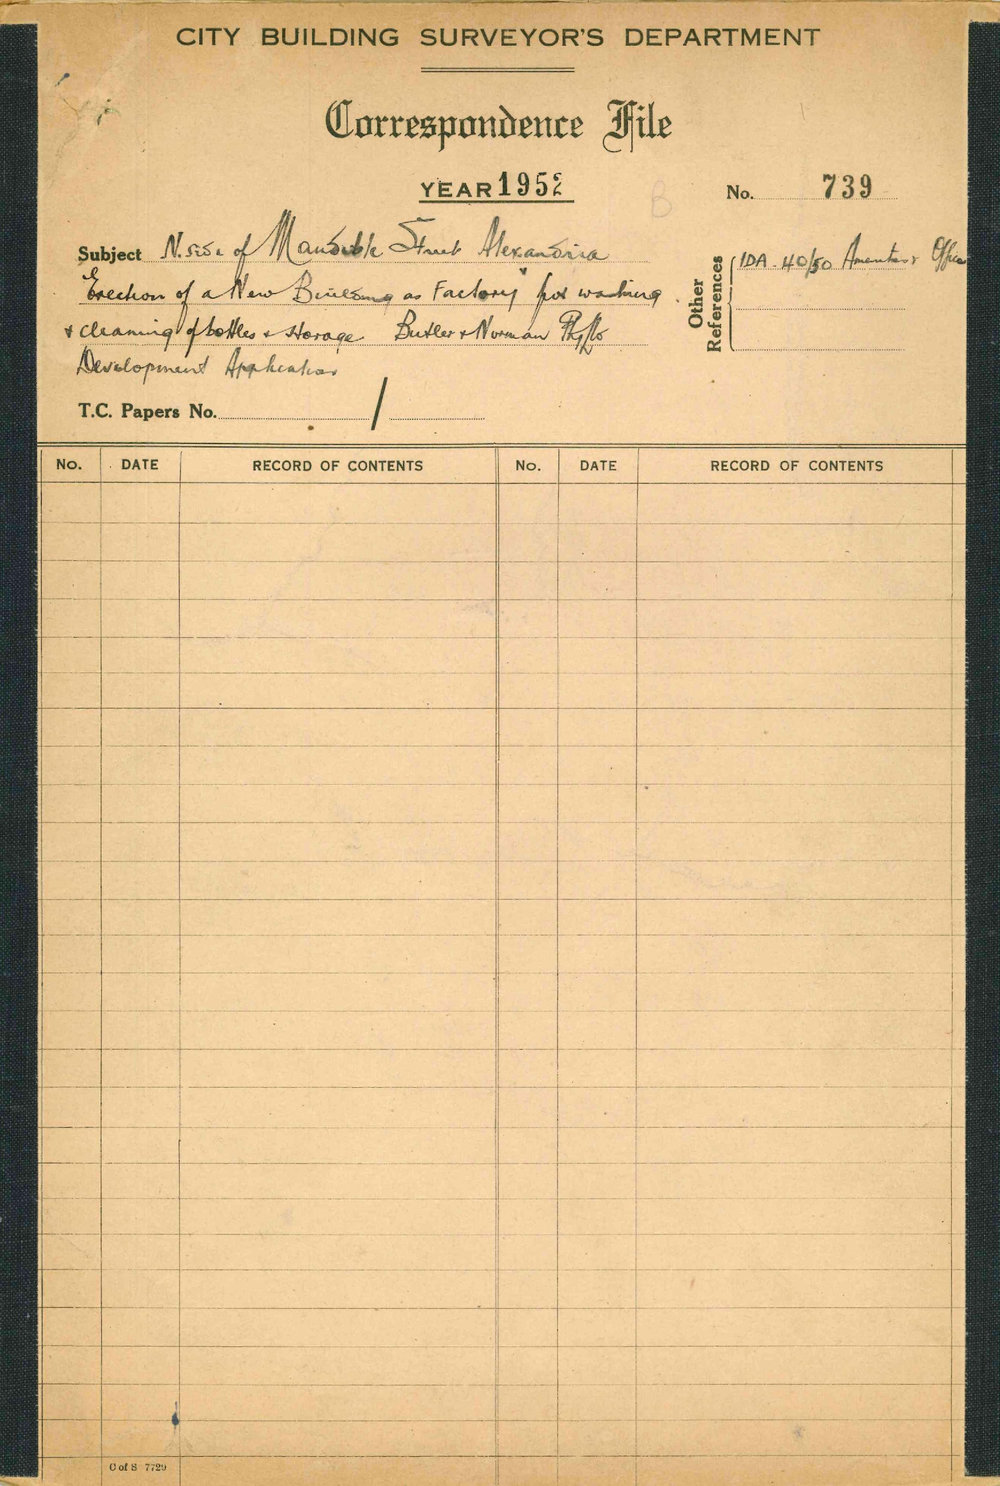 CITY BUILDING SURVEYOR'S DEPARTMENT
Correspondence File
YEAR 1952
No. 739
Subject N. side of Mandible Street Alexandria
Erection of a New Building as Factory" for washing
& cleaning of bottles & storage. Butler & Norman Pty Ltd
Development Application
Other References
IDA 40/50 Amenities & Office
T.C. Papers No. /
No. DATE RECORD OF CONTENTS No. DATE RECORD OF CONTENTS
C of S 7729